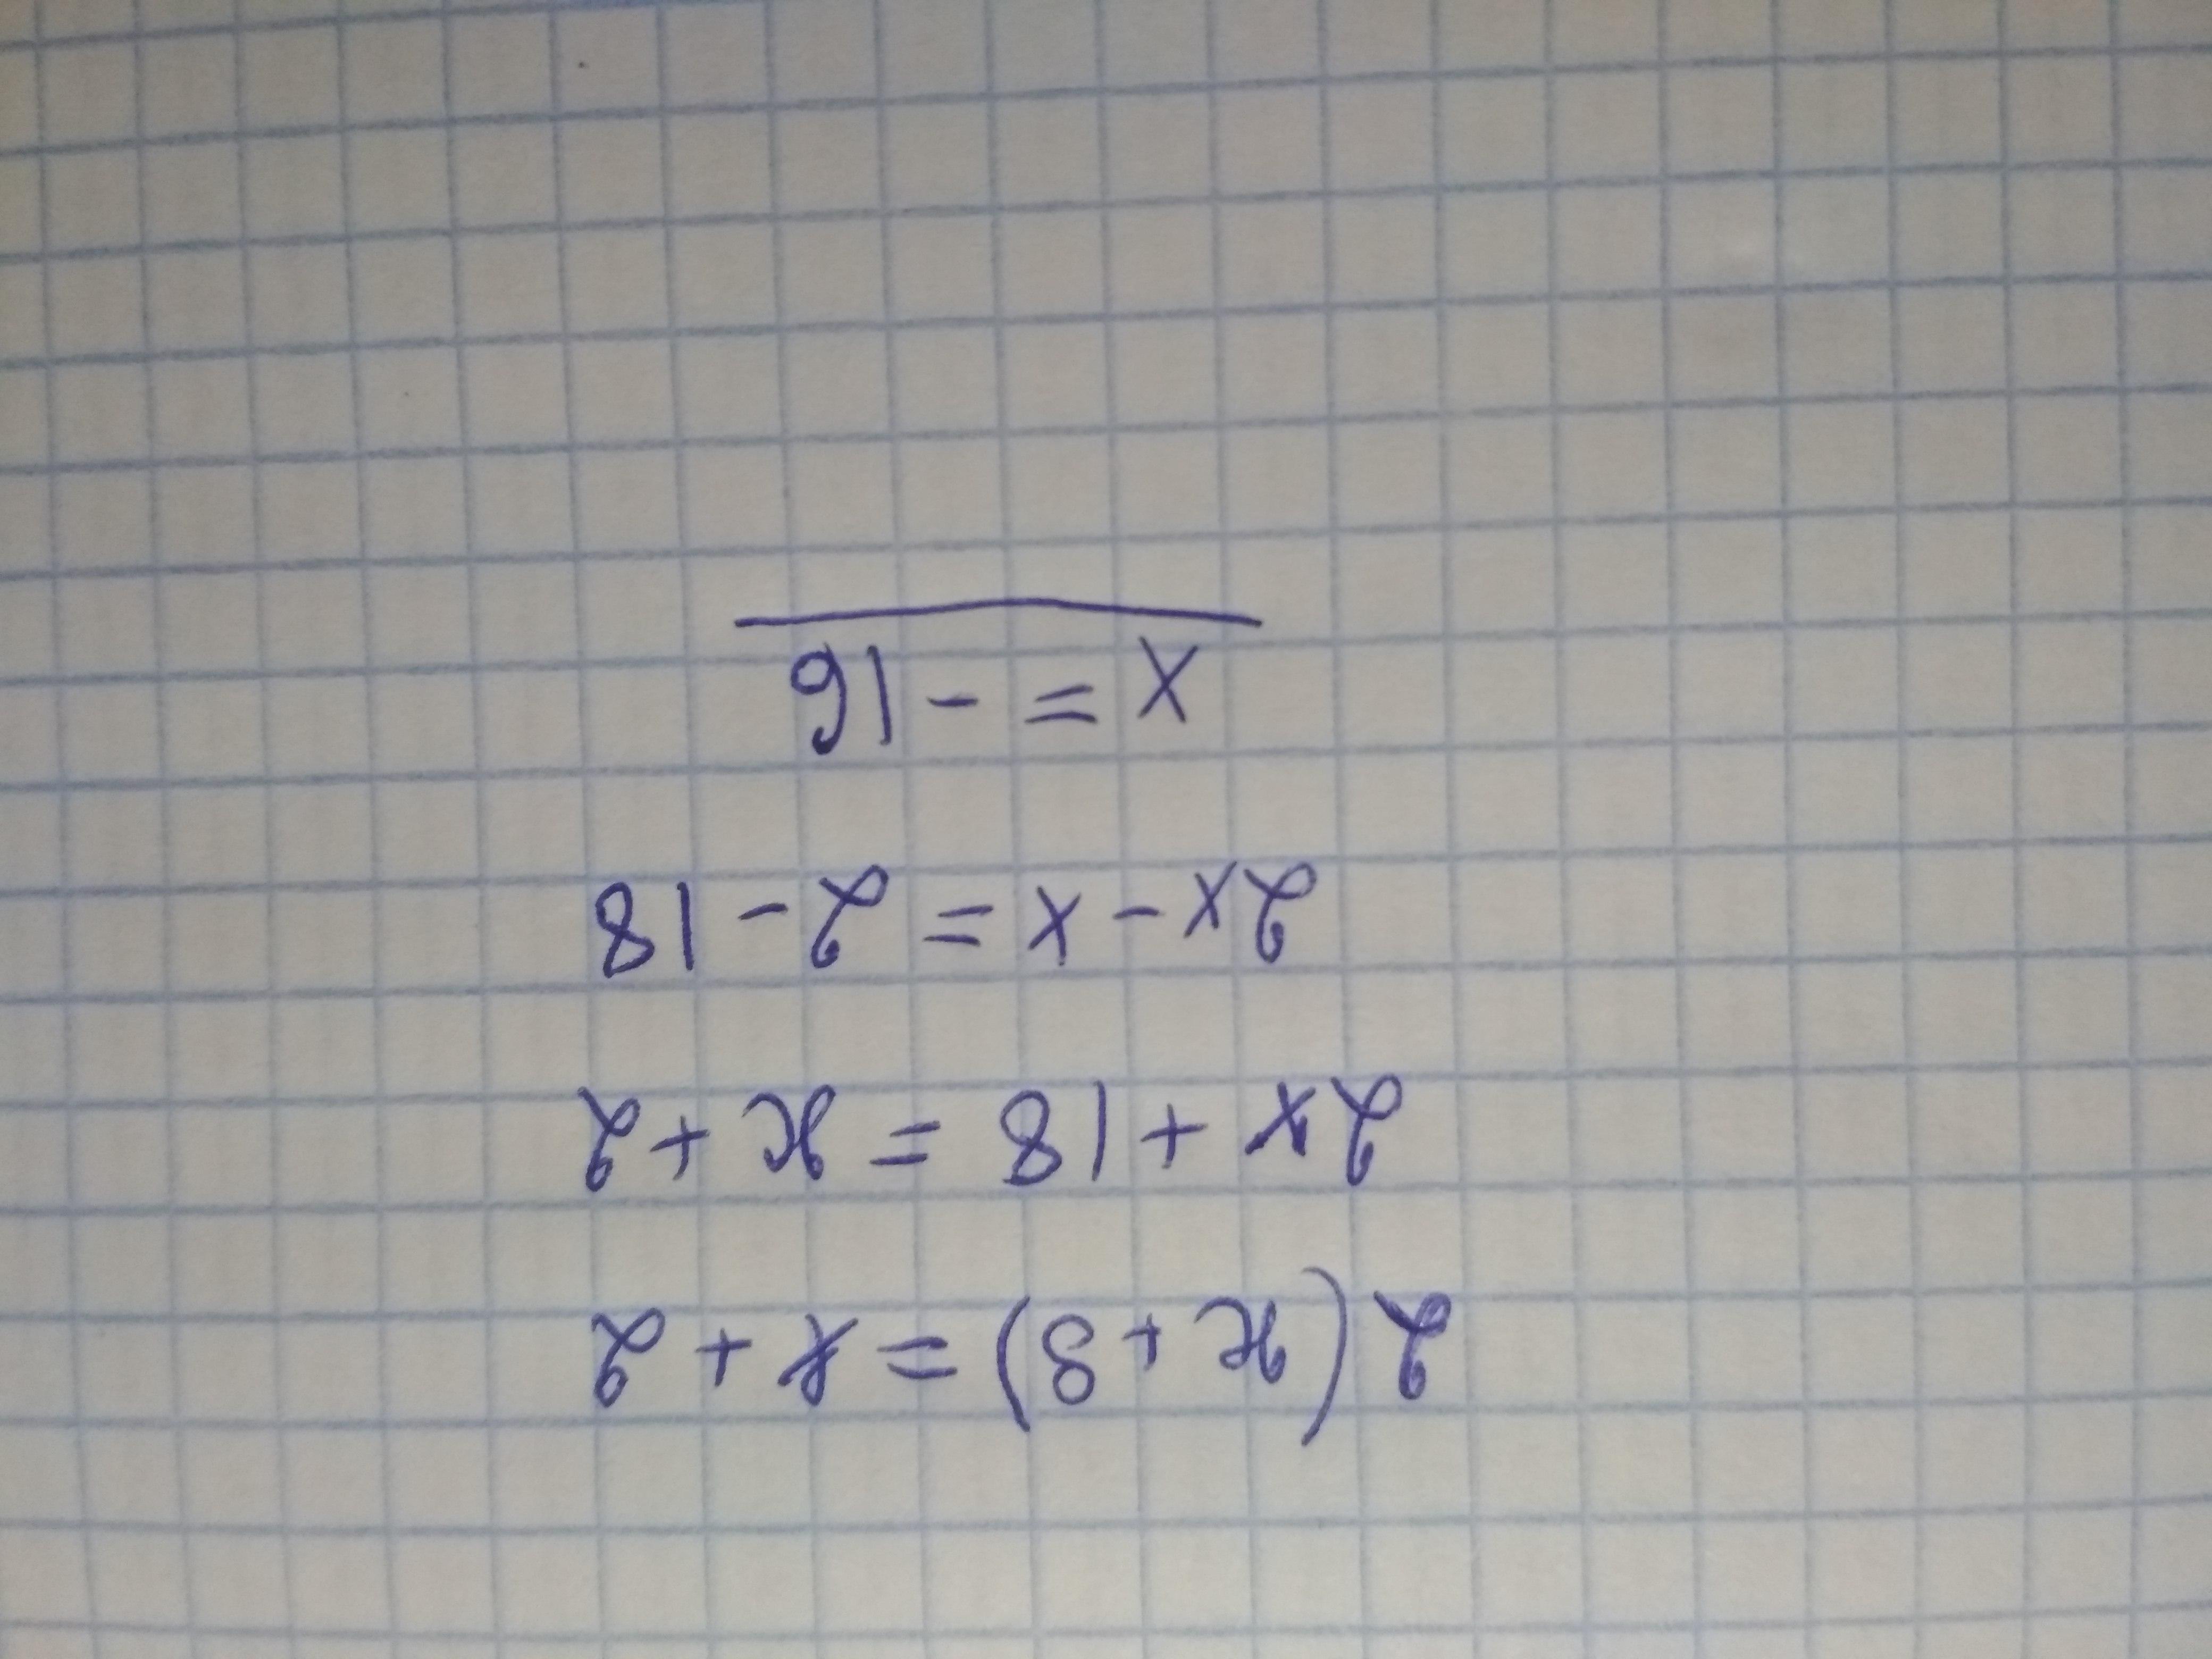 2(x+9)=x+2
2x+18=x+2
2x-x=2-18
x=-16